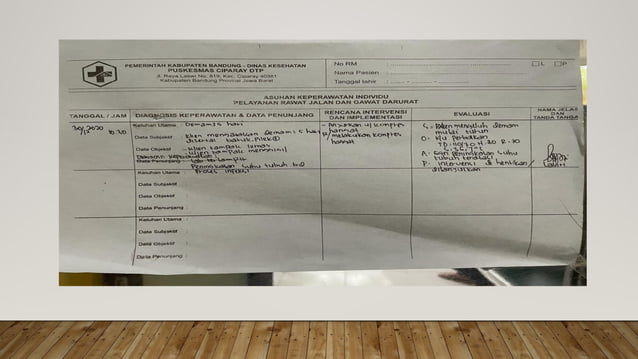 PEMERINTAH KABUPATEN BANDUNG - DINAS KESEHATAN
PUSKESMAS CIPARAY DTP
Jl. Raya Laswi No. 819, Kec. Ciparay 40381
Kabupaten Bandung Provinsi Jawa Barat
No RM :
L P
Nama Pasien :
Tanggal lahir :
ASUHAN KEPERAWATAN INDIVIDU
PELAYANAN RAWAT JALAN DAN GAWAT DARURAT
TANGGAL / JAM
DIAGNOSIS KEPERAWATAN & DATA PENUNJANG
RENCANA INTERVENSI
DAN IMPLEMENTASI
EVALUASI
NAMA JELAS
DAN
TANDA TANGAN
2020
Keluhan Utama : Demam 15 hari
Data Subjektif : klien mengatakan demam 15 hari
disertai batuk, pilek
Data Objektif : - klien tampak lemas
- klien tampak menggigil
Data Penunjang :
Peningkatan suhu tubuh b.d
Proses infeksi
- Anjurkan u/ kompres
hangat
melakukan kompres
hangat
S : Pasien mengeluh demam
mulai turun
O :
A :
tubuh teratasi
P : intervensi dihentikan /
dilanjutkan
Keluhan Utama :
Data Subjektif :
Data Objektif :
Data Penunjang :
Keluhan Utama :
Data Subjektif :
Data Objektif :
Data Penunjang :